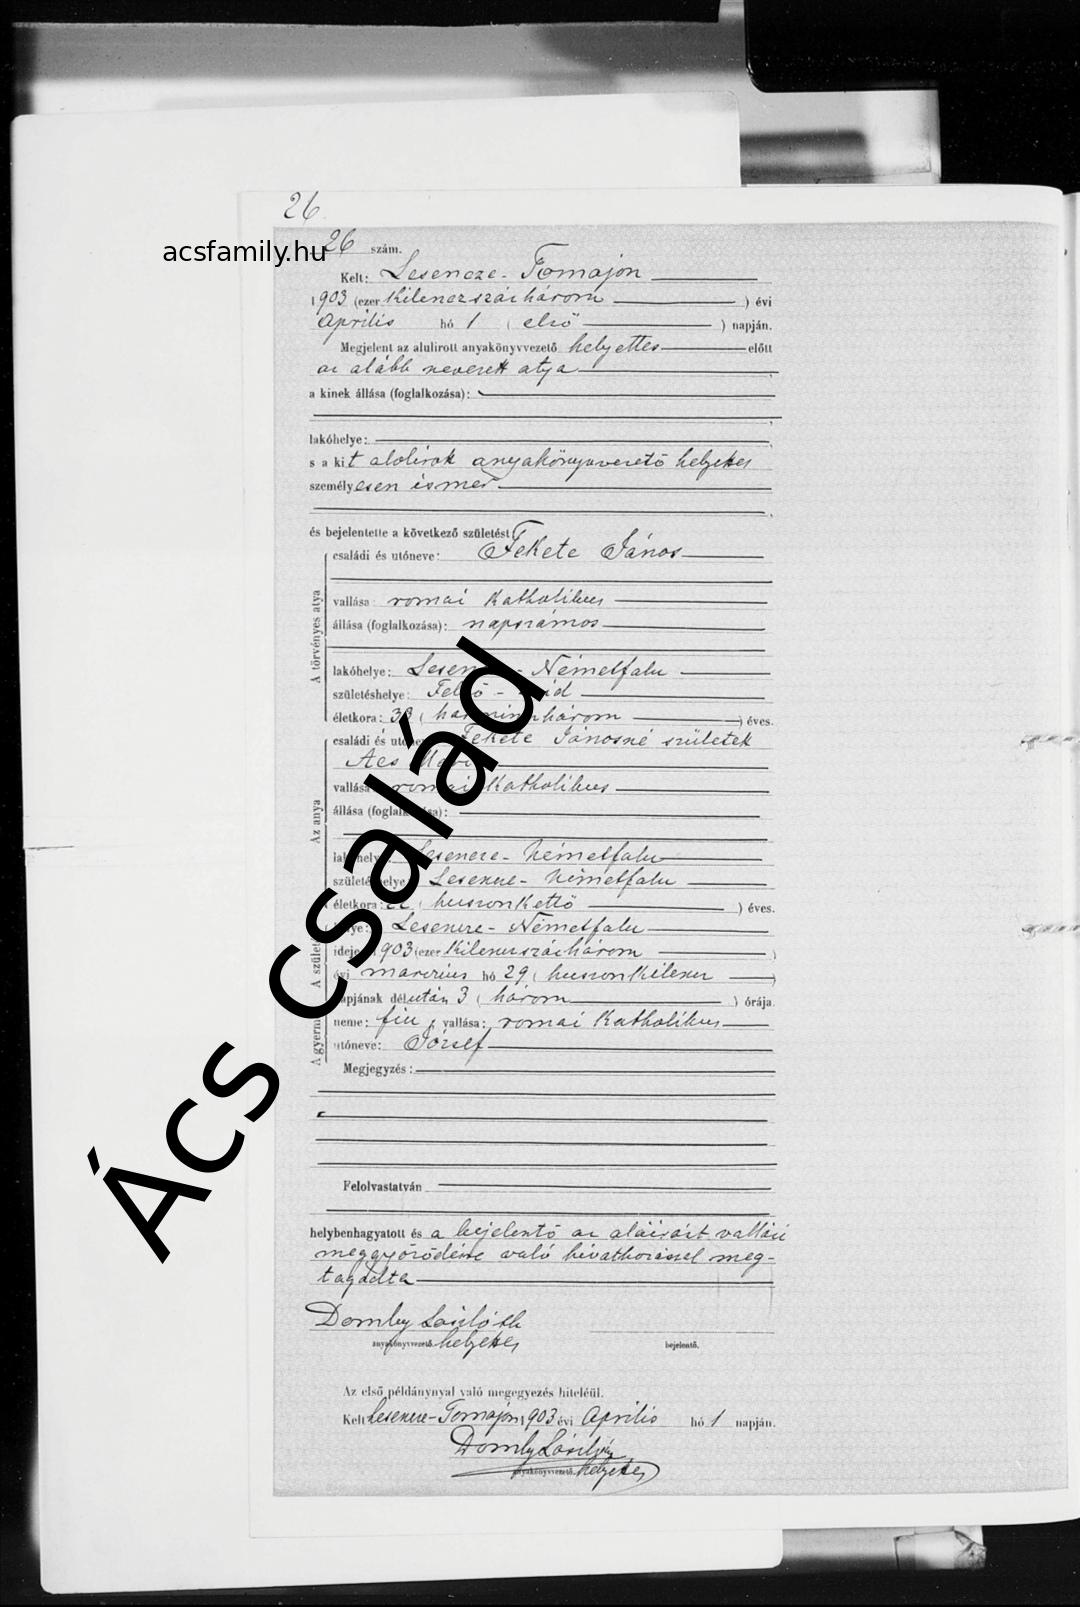 26
26 szám.
acsfamily.hu
Kelt: Lesencze-Tomajon
1903 (ezer kilenczszázhárom) évi
április hó 1 (első) napján.
Megjelent az alulirott anyakönyvvezető helyettes előtt
az alább nevezett atya
a kinek állása (foglalkozása):
lakóhelye:
s a kit alulirok anyakönyvvezető helyettes
személyesen ismer
és bejelentette a következő születést:
A törvényes atya
családi és utóneve: Fekete János
vallása: romai katholikus
állása (foglalkozása): napszámos
lakóhelye: Lesencze-Németfalu
születéshelye: Felső-
életkora: 33 (harminczhárom) éves.
Az anya
családi és utóneve: Fekete Jánosné született
Ács Mari
vallása romai katholikus
állása (foglalkozása):
lakóhelye: Lesencze-Németfalu
születéshelye: Lesencze-Németfalu
életkora: 22 (huszonkettő) éves.
A születés
helye: Lesencze-Németfalu
ideje: 1903 (ezer kilenczszázhárom)
évi márczius hó 29 (huszonkilencz)
napjának délután 3 (három) órája.
A gyermek
neme: fiu; vallása: romai katholikus
utóneve: József
Megjegyzés:
Felolvastatván
helybenhagyatott és a bejelentő az aláirást vallási
meggyőződésére való hivatkozással meg-
tagadta
Domby László th
anyakönyvvezető helyettes
bejelentő.
Az első példánynyal való megegyezés hiteléül.
Kelt Lesencze-Tomajon 1903 évi április hó 1 napján.
Domby László
anyakönyvvezető helyettes
Ács család